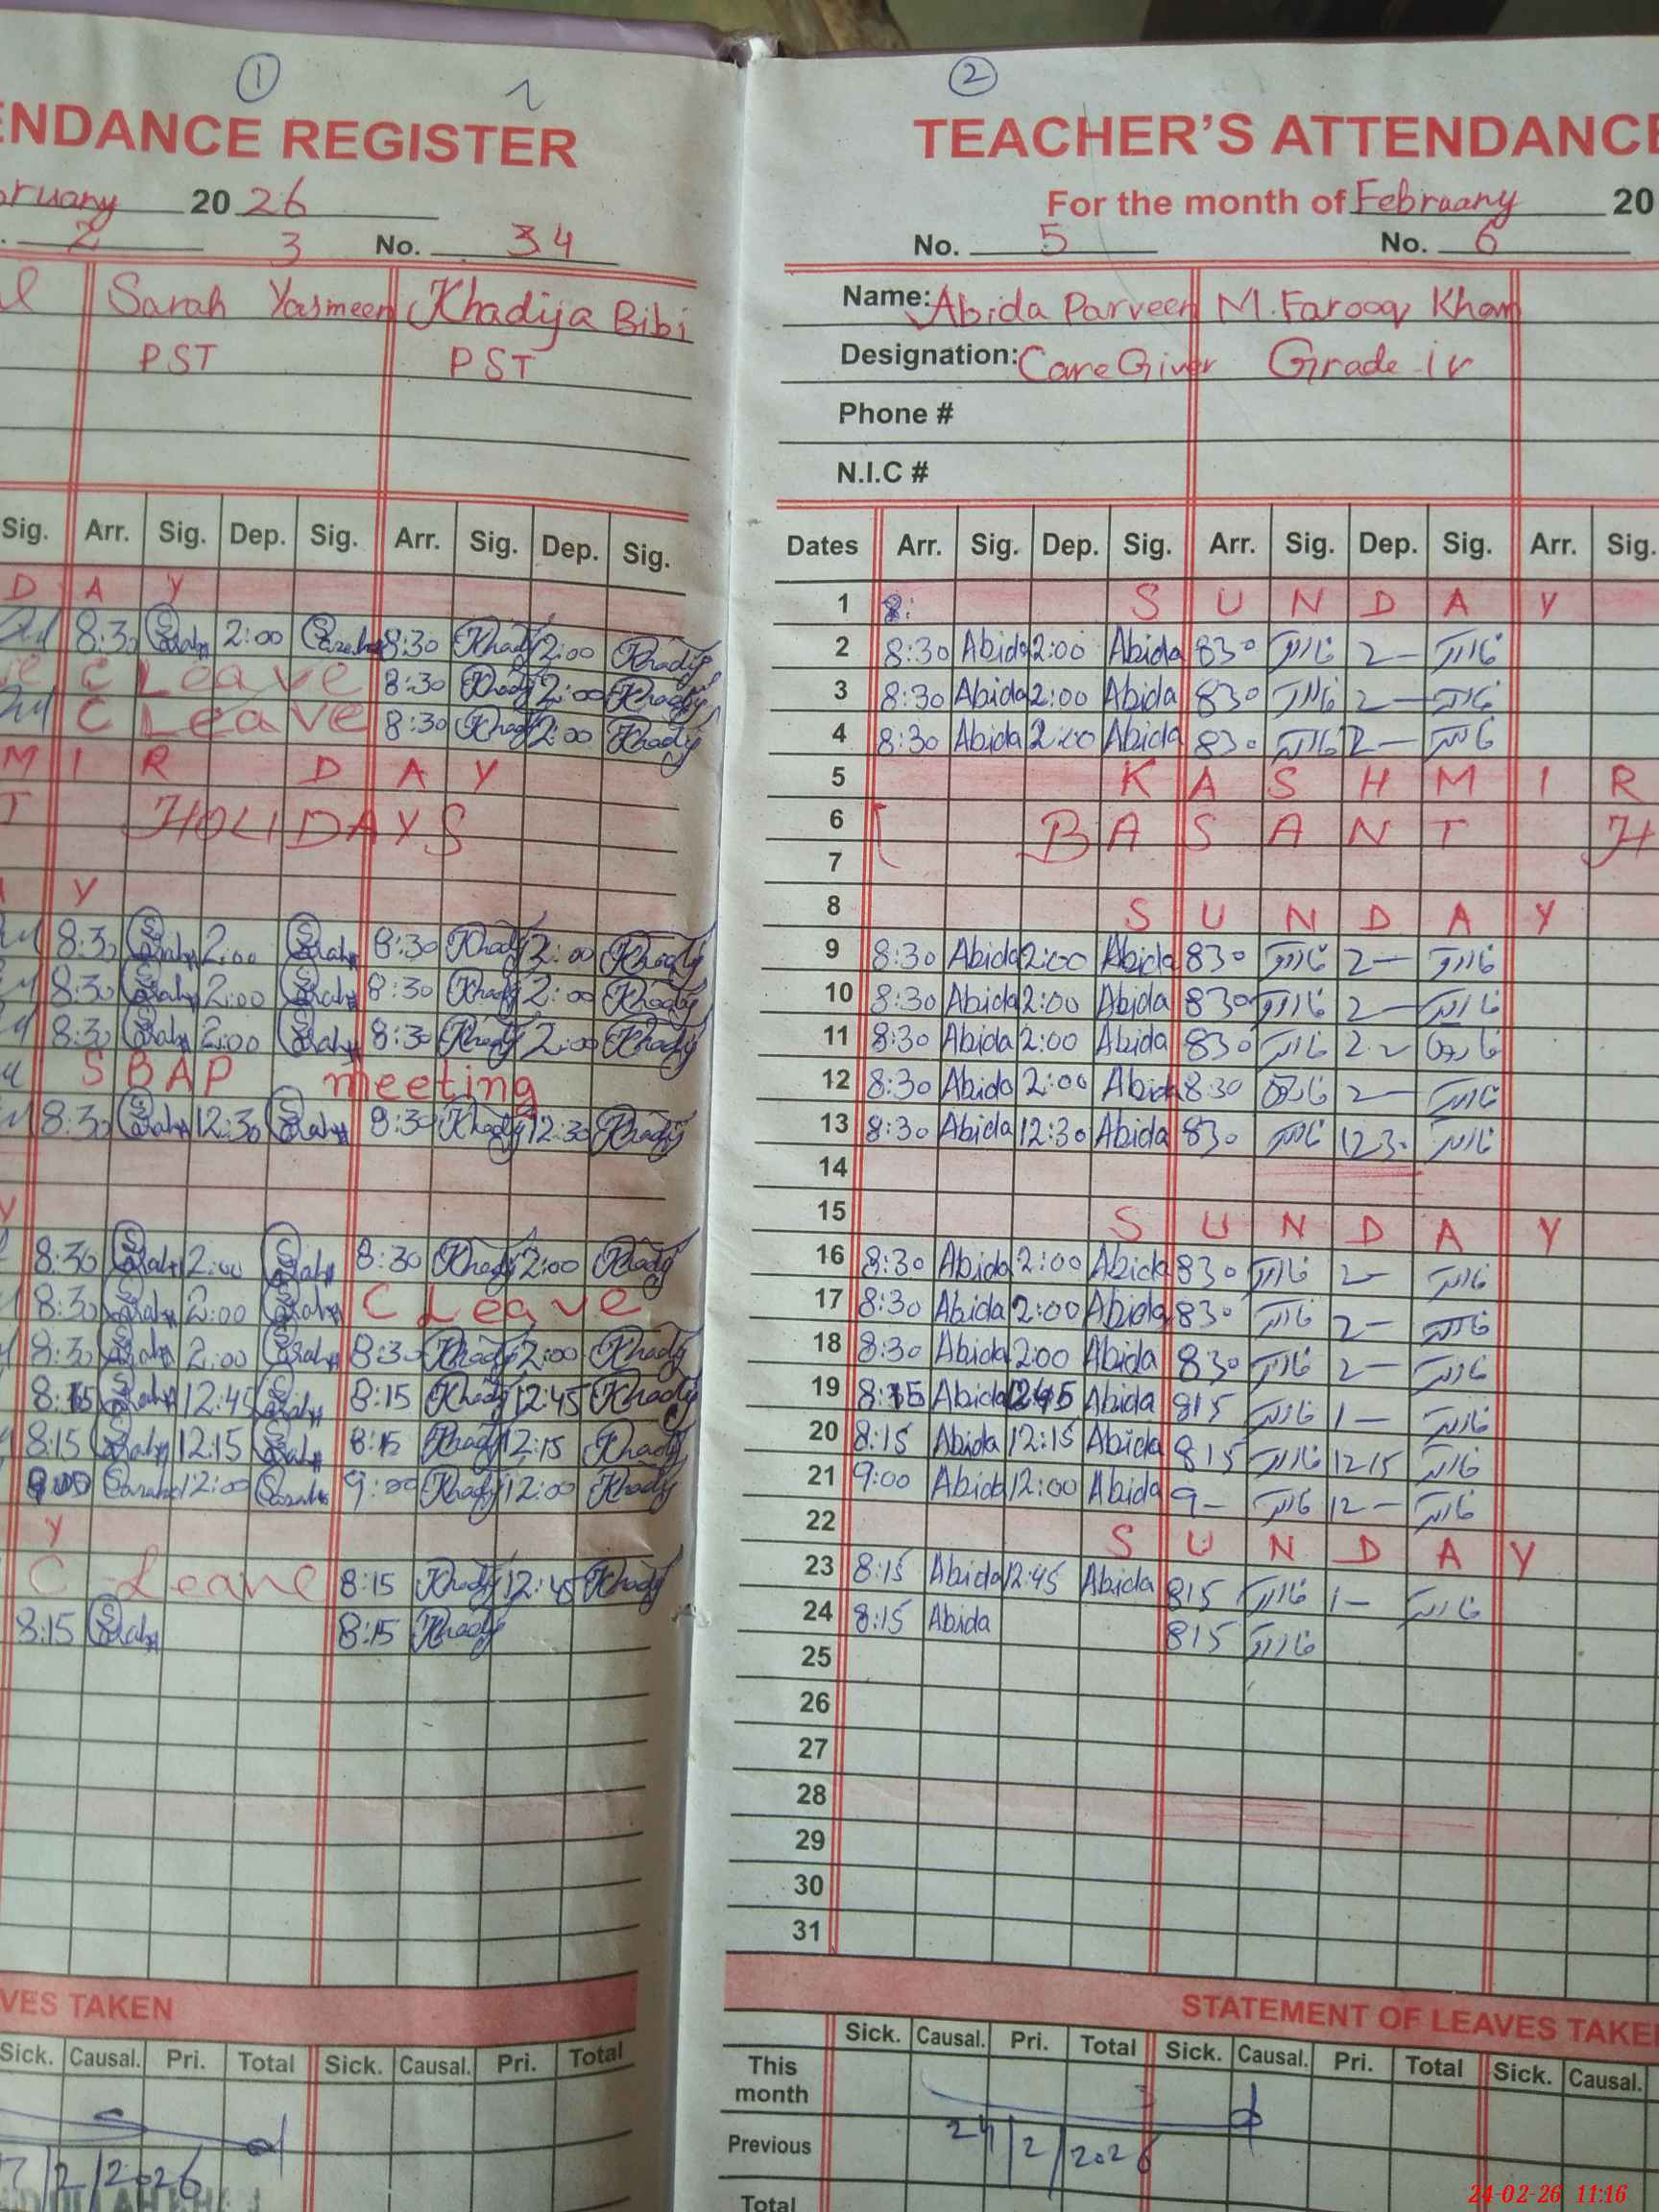 1
2
ENDANCE REGISTER
ruary 20 26
2 3 No. 34
Sarah Yasmeen Khadija Bibi
PST PST
Sig. Arr. Sig. Dep. Sig. Arr. Sig. Dep. Sig.
D A Y
8:30 Sarah 2:00 Sarah 8:30 Khadij 2:00 Khadij
C Leave 8:30 Khadij 2:00 Khadij
C Leave 8:30 Khadij 2:00 Khadij
M I R D A Y
T HOLIDAYS
Y
8:30 Sarah 2:00 Sarah 8:30 Khadij 2:00 Khadij
8:30 Sarah 2:00 Sarah 8:30 Khadij 2:00 Khadij
8:30 Sarah 2:00 Sarah 8:30 Khadij 2:00 Khadij
SBAP meeting
8:30 Sarah 12:30 Sarah 8:30 Khadij 12:30 Khadij
Y
8:30 Sarah 2:00 Sarah 8:30 Khadij 2:00 Khadij
8:30 Sarah 2:00 Sarah C Leave
8:30 Sarah 2:00 Sarah 8:30 Khadij 2:00 Khadij
8:15 Sarah 12:45 Sarah 8:15 Khadij 12:45 Khadij
8:15 Sarah 12:15 Sarah 8:15 Khadij 12:15 Khadij
9:00 Sarah 12:00 Sarah 9:00 Khadij 12:00 Khadij
Y
C Leave 8:15 Khadij 12:45 Khadij
8:15 Sarah 8:15 Khadij
VES TAKEN
Sick. Causal. Pri. Total Sick. Causal. Pri. Total
7/2/2026
TEACHER'S ATTENDANCE
For the month of February 20
No. 5 No. 6
Name: Abida Parveen M. Farooq Khan
Designation: Care Giver Grade iv
Phone #
N.I.C #
Dates Arr. Sig. Dep. Sig. Arr. Sig. Dep. Sig. Arr. Sig.
1 8: S U N D A Y
2 8:30 Abida 2:00 Abida 830 فاروق 2— فاروق
3 8:30 Abida 2:00 Abida 830 فاروق 2— فاروق
4 8:30 Abida 2:00 Abida 830 فاروق 2— فاروق
5 K A S H M I R
6 B A S A N T H
7
8 S U N D A Y
9 8:30 Abida 2:00 Abida 830 فاروق 2— فاروق
10 8:30 Abida 2:00 Abida 830 فاروق 2— فاروق
11 8:30 Abida 2:00 Abida 830 فاروق 2— فاروق
12 8:30 Abida 2:00 Abida 8:30 فاروق 2— فاروق
13 8:30 Abida 12:30 Abida 830 فاروق 1230 فاروق
14
15 S U N D A Y
16 8:30 Abida 2:00 Abida 830 فاروق 2— فاروق
17 8:30 Abida 2:00 Abida 830 فاروق 2— فاروق
18 8:30 Abida 2:00 Abida 830 فاروق 2— فاروق
19 8:15 Abida 12:45 Abida 815 فاروق 1— فاروق
20 8:15 Abida 12:15 Abida 815 فاروق 1215 فاروق
21 9:00 Abida 12:00 Abida 9— فاروق 12— فاروق
22 S U N D A Y
23 8:15 Abida 12:45 Abida 815 فاروق 1— فاروق
24 8:15 Abida 815 فاروق
25
26
27
28
29
30
31
STATEMENT OF LEAVES TAKE
Sick. Causal. Pri. Total Sick. Causal. Pri. Total Sick. Causal.
This month
Previous 24/2/2026
Total
24-02-26 11:16